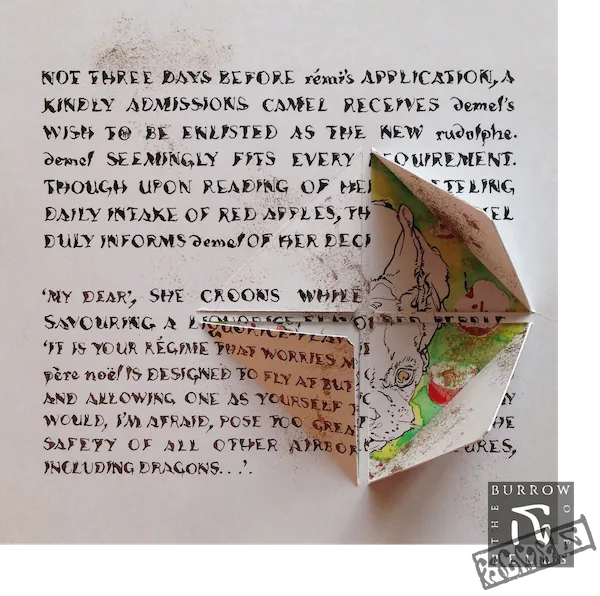 NOT THREE DAYS BEFORE rémi's APPLICATION, A
KINDLY ADMISSIONS CAMEL RECEIVES demel's
WISH TO BE ENLISTED AS THE NEW rudolphe.
demel SEEMINGLY FITS EVERY REQUIREMENT.
THOUGH UPON READING OF HE
DAILY INTAKE OF RED APPLES, TH
DULY INFORMS demel OF HER DECI
'MY DEAR', SHE CROONS WHILE
SAVOURING A LIQUORICE-FLAVOURED PEBBLE.
'IT IS YOUR RÉGIME THAT WORRIES M
père noël IS DESIGNED TO FLY AT BUT
AND ALLOWING ONE AS YOURSELF TO
WOULD, I'M AFRAID, POSE TOO GREA THE
SAFETY OF ALL OTHER AIRBOR URES,
INCLUDING DRAGONS...'.
THE BURROW OF